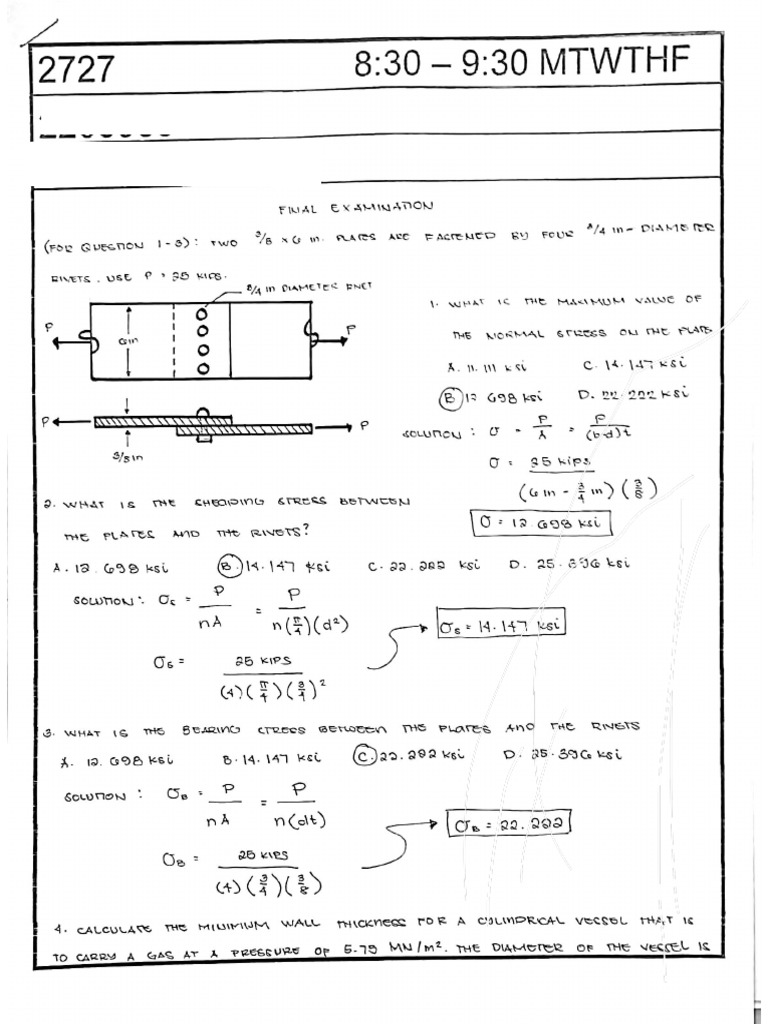 2727 8:30 – 9:30 MTWTHF
FINAL EXAMINATION
(FOR QUESTION 1-3): TWO 3/8 x 6 in. PLATES ARE FASTENED BY FOUR 3/4 in - DIAMETER
RIVETS. USE P = 25 KIPS.
3/4 in DIAMETER RIVET
P
6 in
P
P
P
3/8 in
1. WHAT IS THE MAXIMUM VALUE OF
THE NORMAL STRESS ON THE PLATE
A. 11.111 ksi C. 14.147 ksi
B. 12.698 ksi D. 22.222 ksi
SOLUTION : σ = P/A = P/(b-d)t
σ = 25 kips/(6in - 3/4 in)(3/8)
σ = 12.698 ksi
2. WHAT IS THE SHEARING STRESS BETWEEN
THE PLATES AND THE RIVETS?
A. 12.698 ksi B. 14.147 ksi C. 22.222 ksi D. 25.396 ksi
SOLUTION : σs = P/nA = P/n(π/4)(d²)
σs = 25 KIPS/(4)(π/4)(3/4)²
σs = 14.147 ksi
3. WHAT IS THE BEARING STRESS BETWEEN THE PLATES AND THE RIVETS
A. 12.698 ksi B. 14.147 ksi C. 22.222 ksi D. 25.396 ksi
SOLUTION : σB = P/nA = P/n(dt)
σB = 25 KIPS/(4)(3/4)(3/8)
σB = 22.222
4. CALCULATE THE MINIMUM WALL THICKNESS FOR A CYLINDRICAL VESSEL THAT IS
TO CARRY A GAS AT A PRESSURE OF 5.79 MN/m². THE DIAMETER OF THE VESSEL IS